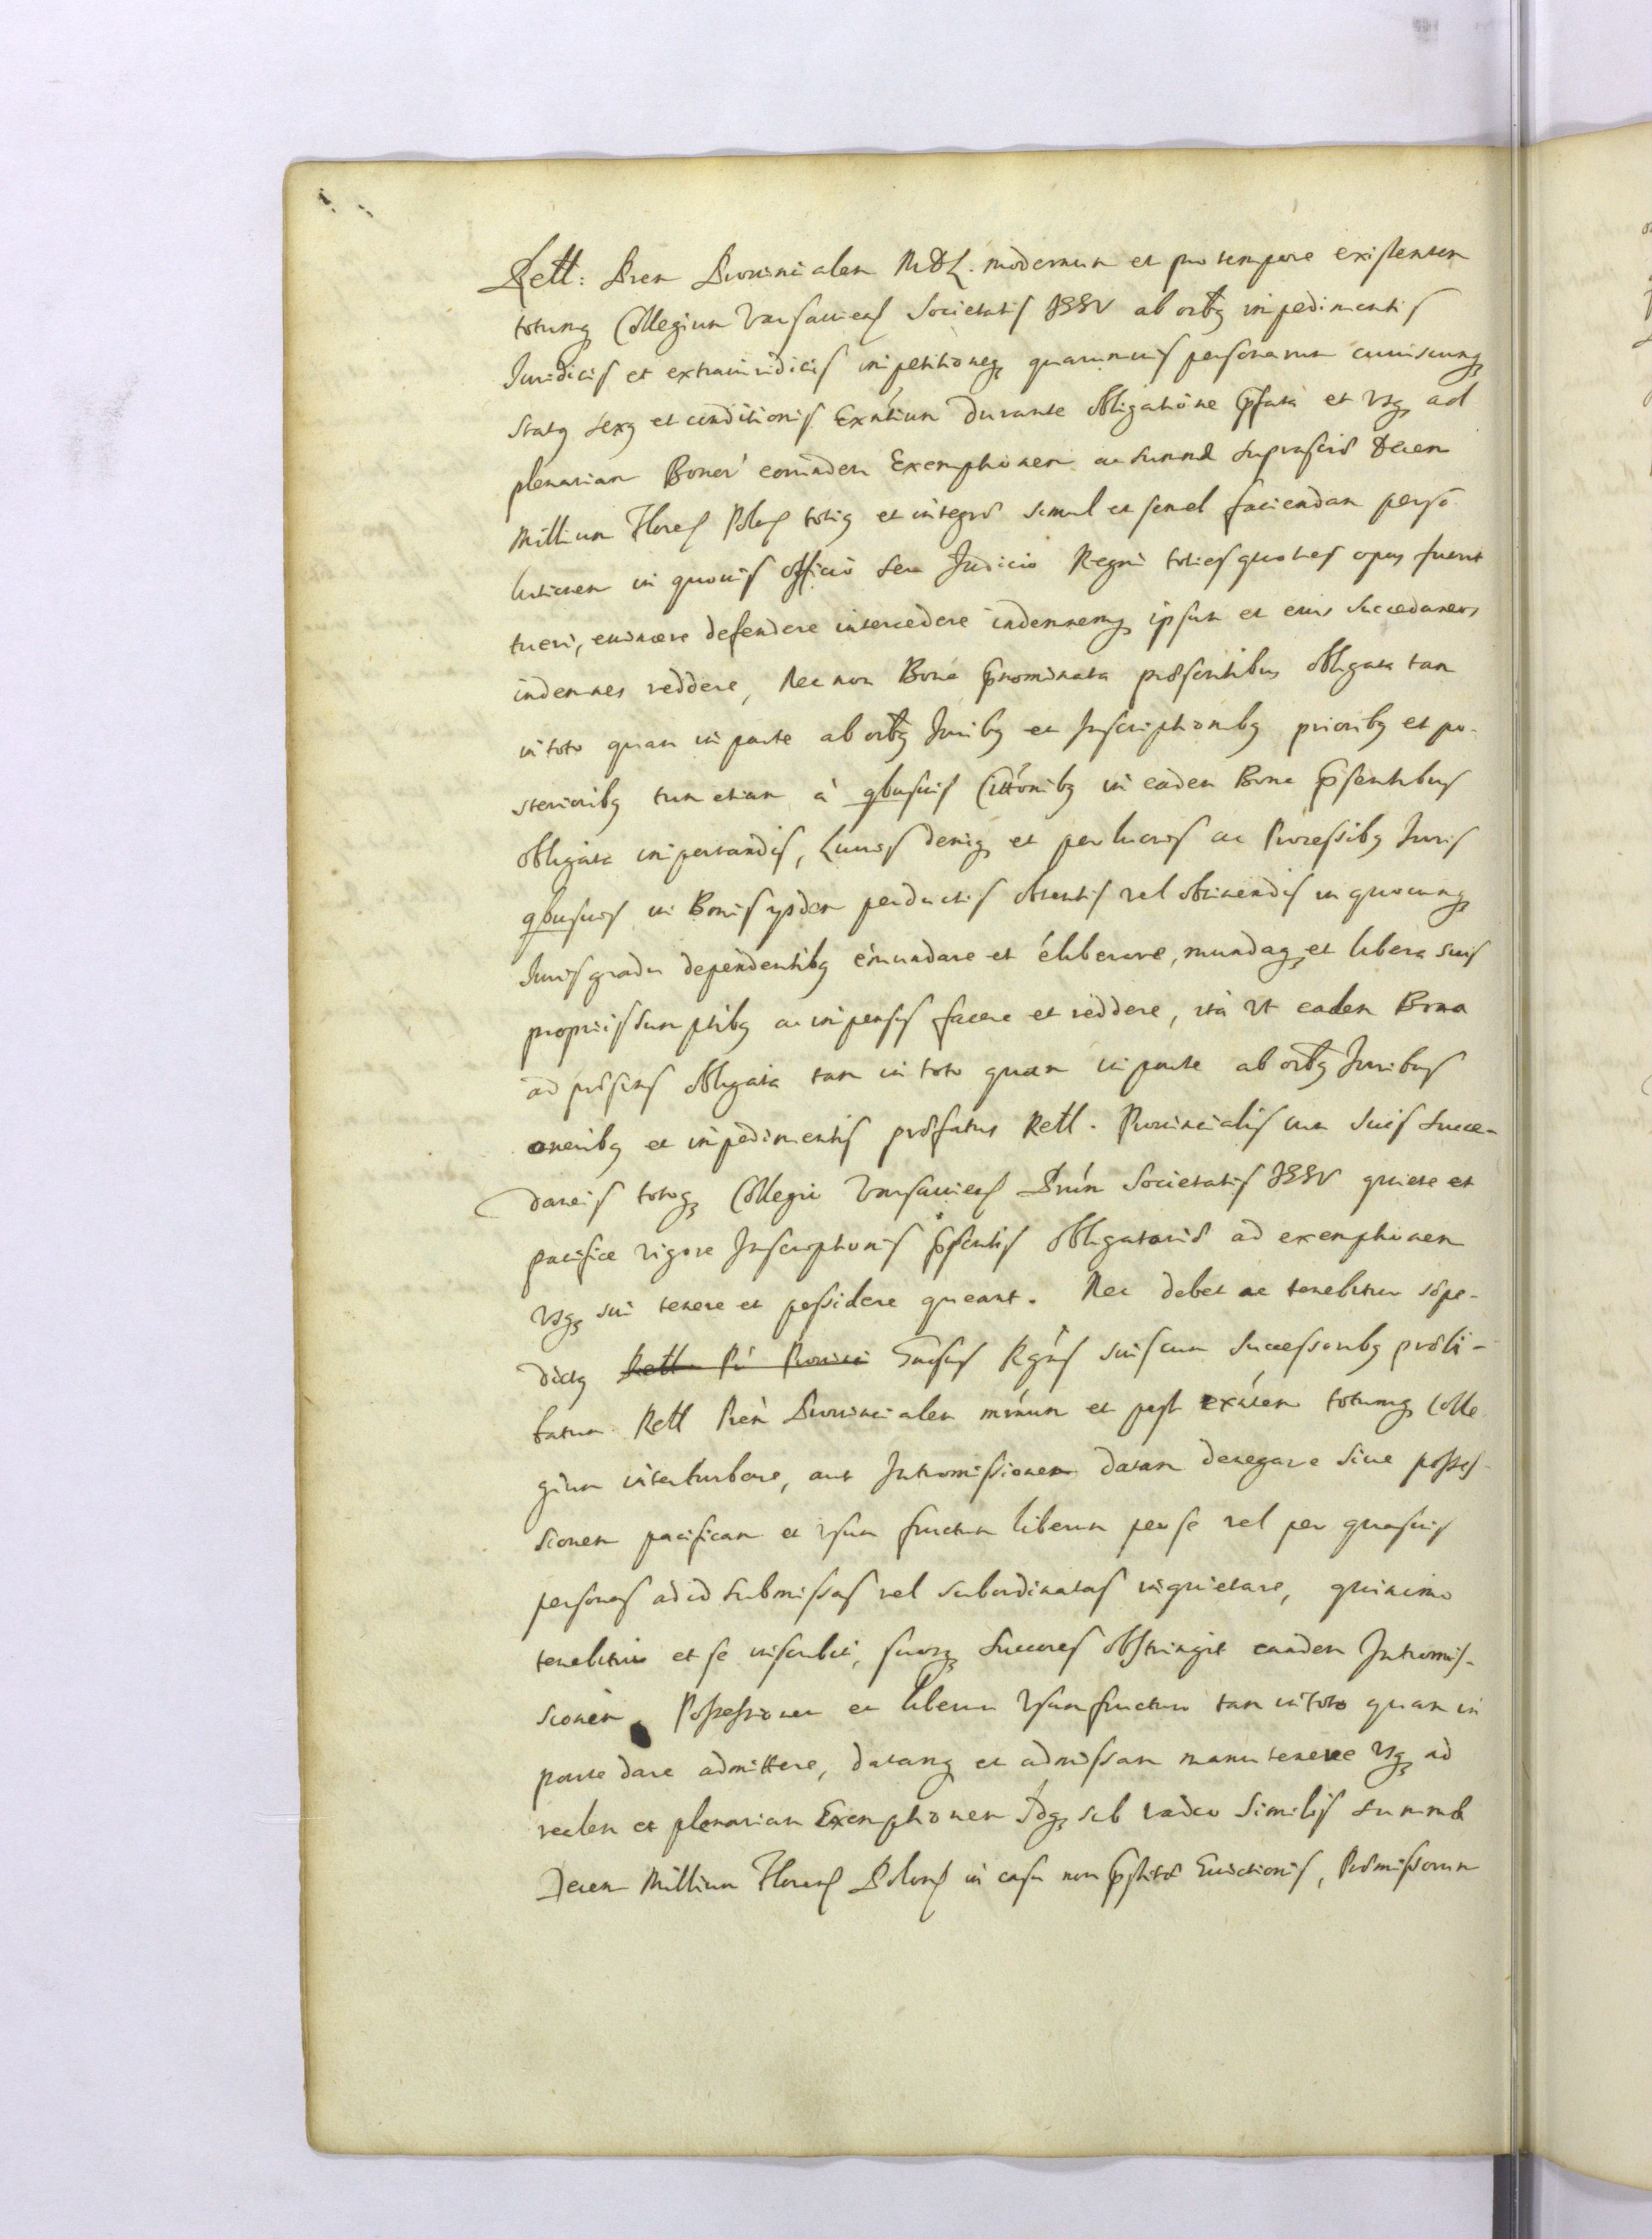 Rett: Prem Provincialem MDL. modernum et pro tempore existentem
totumq Collegium Varsaviens Societatis JESV ab oibq impedimentis
Juridicis et extraiuridicis impetitioneq quarumvis personarum cuiuscunq
Statq sexq et conditionis Exñtium durante obligatione pfata et Vsq ad
plenariam Bonor eorundem Exemptionem ac summæ suprascræ Decem
Millium Floren Polon totiq et integræ simul et semel faciendam perso
lutionem in quovis officio seu Judicio Regni toties quoties opus fuerit
tueri, evincere defendere intercedere indemnemq ipsum et eius succedaneos
indemnes reddere, Nec non Bona pnominata præsentibus obligata tam
in toto quam in parte ab oibq Juribq et Inscriptionibq prioribq et po-
sterioribq tum etiam à qbusvis in eadem Bona psentibus
obligata importandis, Lucris deniq et perlucris ac Processibq Juris
qbusvis in Bonis ysdem perductis obtentis vel obtinendis in quocunq
Juris gradu dependentibq emundare et éliberare, mundaq et libera suis
proprijs sumptibq ac impensis facere et reddere, ità Vt eadem Bona
ad præsens obligata tam in toto quam in parte ab oibq Juribus
oneribq et impedimentis præfatus Rett. Provincialis cum suis succe-
daneis totoq Collegio Varsaviens Prúm Societatis JESV quiete et
pacifice vigore Inscriptionis psentis obligatoriæ ad exemptionem
Vsq sui tenere et possidere queant. Nec debet ac tenebitur sæpe-
dictq Rett Pr Provinci Gnsus Rgns suis cum Successoribq præli-
batum Rett Prem Provincialem mnum et post exñtem totumq Colle
gium interturbare, aut Intromissionem datam denegare sive posses-
sionem pacificam et vsum fructum liberum per se vel per quasvis
personas ad id submissas vel subordinatas inquietare, quinimo
tenebitur et se inscribit, suosq Succores obstringit eandem Intromis-
sionem Possessionem et liberum Vsumfructum tam in toto quam in
parte dare admittere, datamq et admissam manutenere Vsq ad
realem et plenariam Exemptionem Idq sub vadio similis summæ
Decem Millium Floren Polon in casu non pstitæ Evictionis, Præmissorum